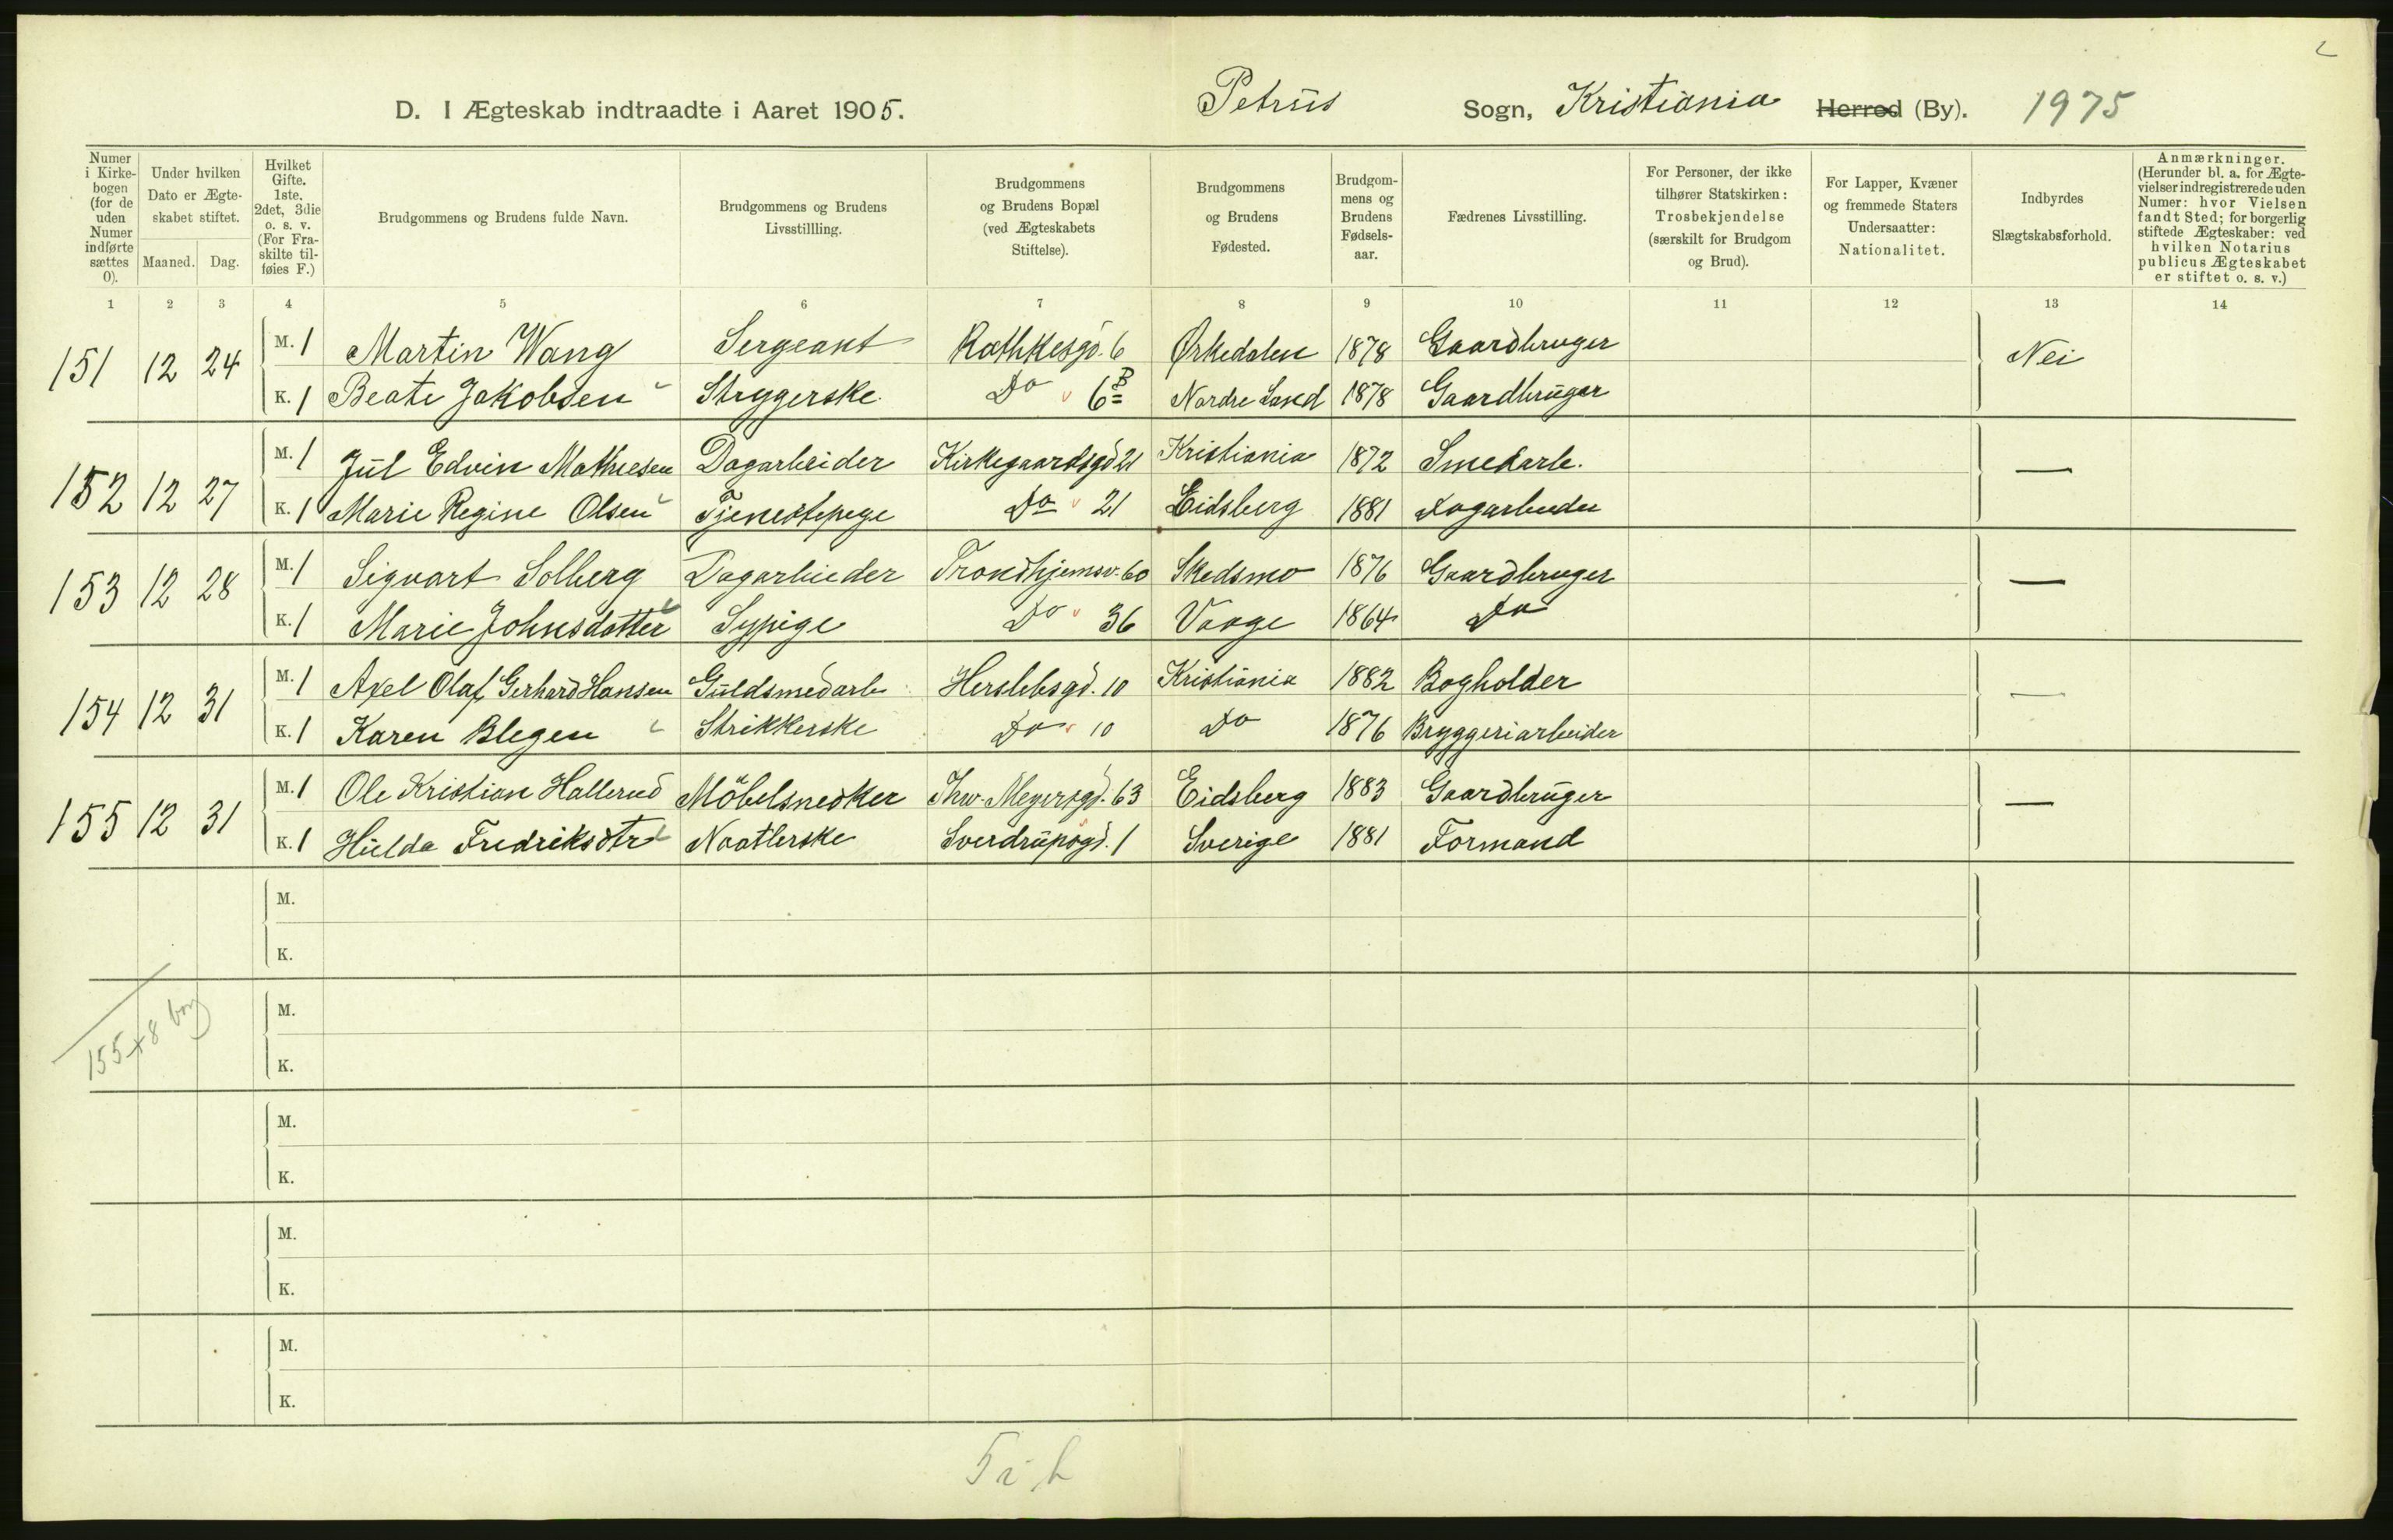 D. I Ægteskab indtraadte i Aaret 1905. Petrus Sogn, Kristiania Herred (By). 1975
Numer i Kirkebogen (for de uden Numer indførte sættes 0).
Under hvilken Dato er Ægteskabet stiftet.
Maaned. Dag.
Hvilket Gifte. 1ste, 2det, 3die o. s. v. (For Fraskilte tilføies F.)
Brudgommens og Brudens fulde Navn.
Brudgommens og Brudens Livsstillling.
Brudgommens og Brudens Bopæl (ved Ægteskabets Stiftelse).
Brudgommens og Brudens Fødested.
Brudgommens og Brudens Fødselsaar.
Fædrenes Livsstilling.
For Personer, der ikke tilhører Statskirken: Trosbekjendelse (særskilt for Brudgom og Brud).
For Lapper, Kvæner og fremmede Staters Undersaatter: Nationalitet.
Indbyrdes Slægtskabsforhold.
Anmærkninger. (Herunder bl. a. for Ægtevielser indregistrerede uden Numer: hvor Vielsen fandt Sted; for borgerlig stiftede Ægteskaber: ved hvilken Notarius publicus Ægteskabet er stiftet o. s. v.)
1 2 3 4 5 6 7 8 9 10 11 12 13 14
151 12 24 M. 1 Martin Wang Sergeant Rathkesgd. 6 Ørkedalen 1878 Gaardbruger Nei
K. 1 Beate Jakobsen Strygerske Do 6B Nordre Land 1878 Gaardbruger
152 12 27 M. 1 Jul Edvin Mathiesen Dagarbeider Kirkegaardsgd 21 Kristiania 1872 Smedarb. —
K. 1 Marie Regine Olsen Tjenestepige Do 21 Eidsberg 1881 Dagarbeider
153 12 28 M. 1 Sigvart Solberg Dagarbeider Trondhjemsv. 60 Skedsmo 1876 Gaardbruger —
K. 1 Marie Johnsdatter Sypige Do 36 Vaage 1864 Do
154 12 31 M. 1 Axel Olaf Gerhard Hansen Guldsmedarb Herslebsgd. 10 Kristiania 1882 Bogholder —
K. 1 Karen Blegen Strikkerske Do 10 Do 1876 Bryggeriarbeider
155 12 31 M. 1 Ole Kristian Hallerud Möbelsnedker Thv. Meyersgd. 63 Eidsberg 1883 Gaardbruger —
K. 1 Hulda Fredriksdtr Naatlerske Sverdrupsgd. 1 Sverige 1881 Formand
M.
K.
155+8 borg
M.
K.
M.
K.
M.
K.
M.
K.